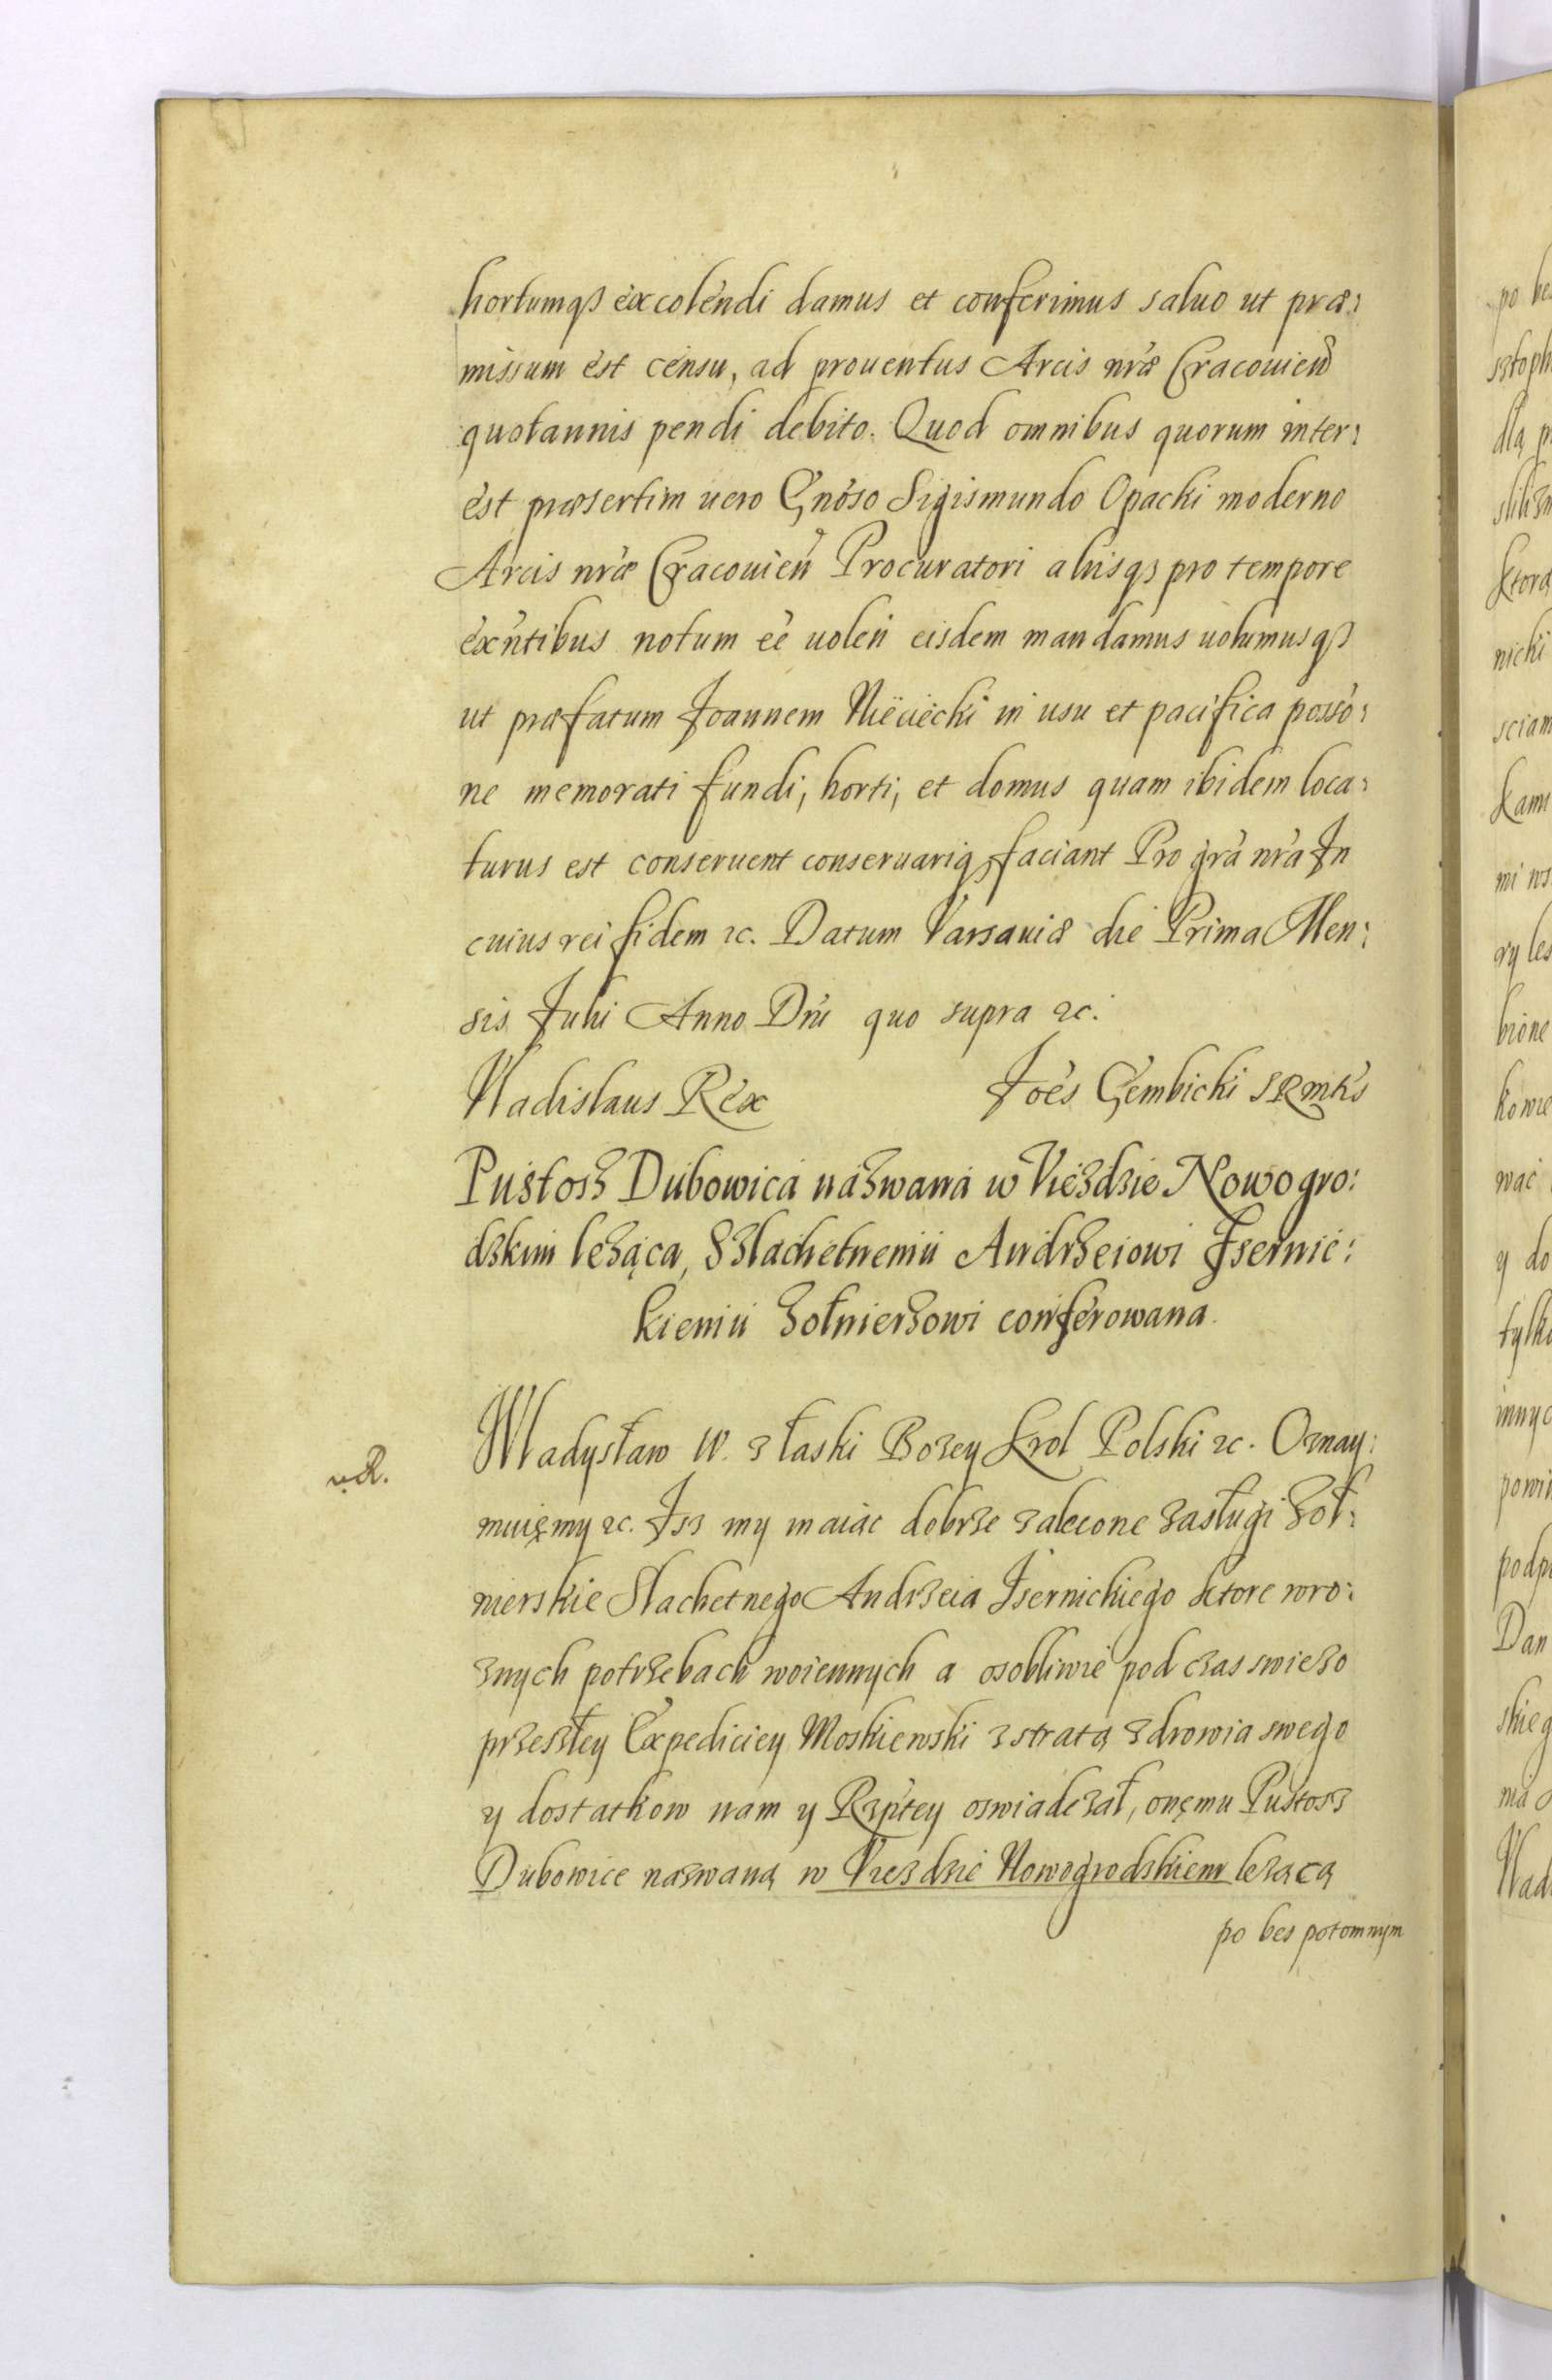 hortumqꝫ excolendi damus et conferimus saluo ut præ:
missum est censu, ad prouentus Arcis nr̃æ Cracouien̄
quotannis pendi debito. Quod omnibus quorum inter:
est præsertim uero Gnoso Sigismundo Opacki moderno
Arcis nr̃æ Cracouien̄ Procuratori aliisqꝫ pro tempore
exn̄tibus notum eē uolen̄ eisdem mandamus uolumusqꝫ
ut præfatum Joannem Nieciecki in usu et pacifica posso:
ne memorati fundi, horti, et domus quam ibidem loca:
turus est conseruent conseruariqꝫ faciant Pro gr̃a nr̃a In
cuius rei fidem ꝛc. Datum Varsauiæ die Prima Men:
sis Julii Anno Dn̄i quo supra ꝛc.
Vladislaus Rex Joēs Gembicki SRmtis
Pustosz Dubowica názwana w Vieździe Nowogro:
dzkim leżąca, Szlachetnemu Andrzeiowi Jsernic:
kiemu Zołnierzowi conferowana.
Władysław IV. z łaski Bozey Krol Polski ꝛc. Oznay:
muięmy ꝛc. Jsz my maiąc dobrze zalecone zasługi Zoł:
nierskie Slachetnego Andrzeia Jsernickiego ktore w ro:
znych potrzebach woiennych a osobliwie pod czas swiezo
przeszłey Expediciey Moskiewski z stratą zdrowia swego
y dostatkow nam y Rzptey oswiadczał, onęmu Pustosz
Dubowice nazwaną w Viezdzie Nowogrodskiem lezącą
po bes potomnym
po be